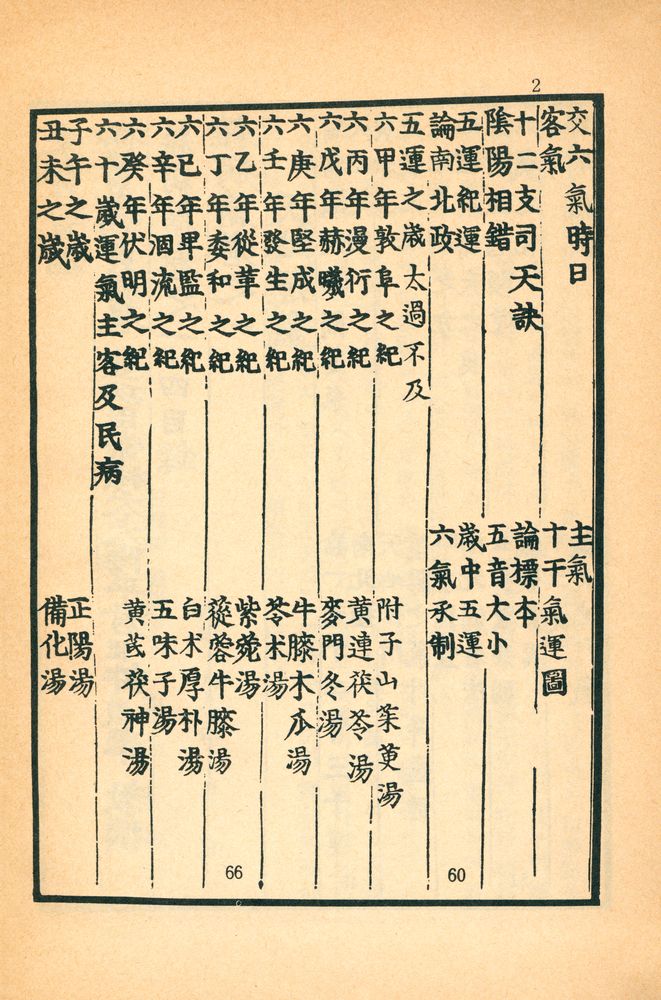 2
交六氣時日
主氣
客氣
十干氣運圖
十二支司天訣
論標本
陰陽相錯
五音大小
五運紀運
歲中五運
論南北政
六氣承制
五運之歲太過不及
六甲年敦阜之紀
附子山茱萸湯
六丙年漫衍之紀
黃連茯苓湯
六戊年赫曦之紀
麥門冬湯
六庚年堅成之紀
牛膝木瓜湯
六壬年發生之紀
苓朮湯
六乙年從革之紀
紫菀湯
六丁年委和之紀
蓯蓉牛膝湯
六己年卑監之紀
白朮厚朴湯
六辛年涸流之紀
五味子湯
六癸年伏明之紀
黃芪茯神湯
六十歲運氣主客及民病
子午之歲
正陽湯
丑未之歲
備化湯
66
60